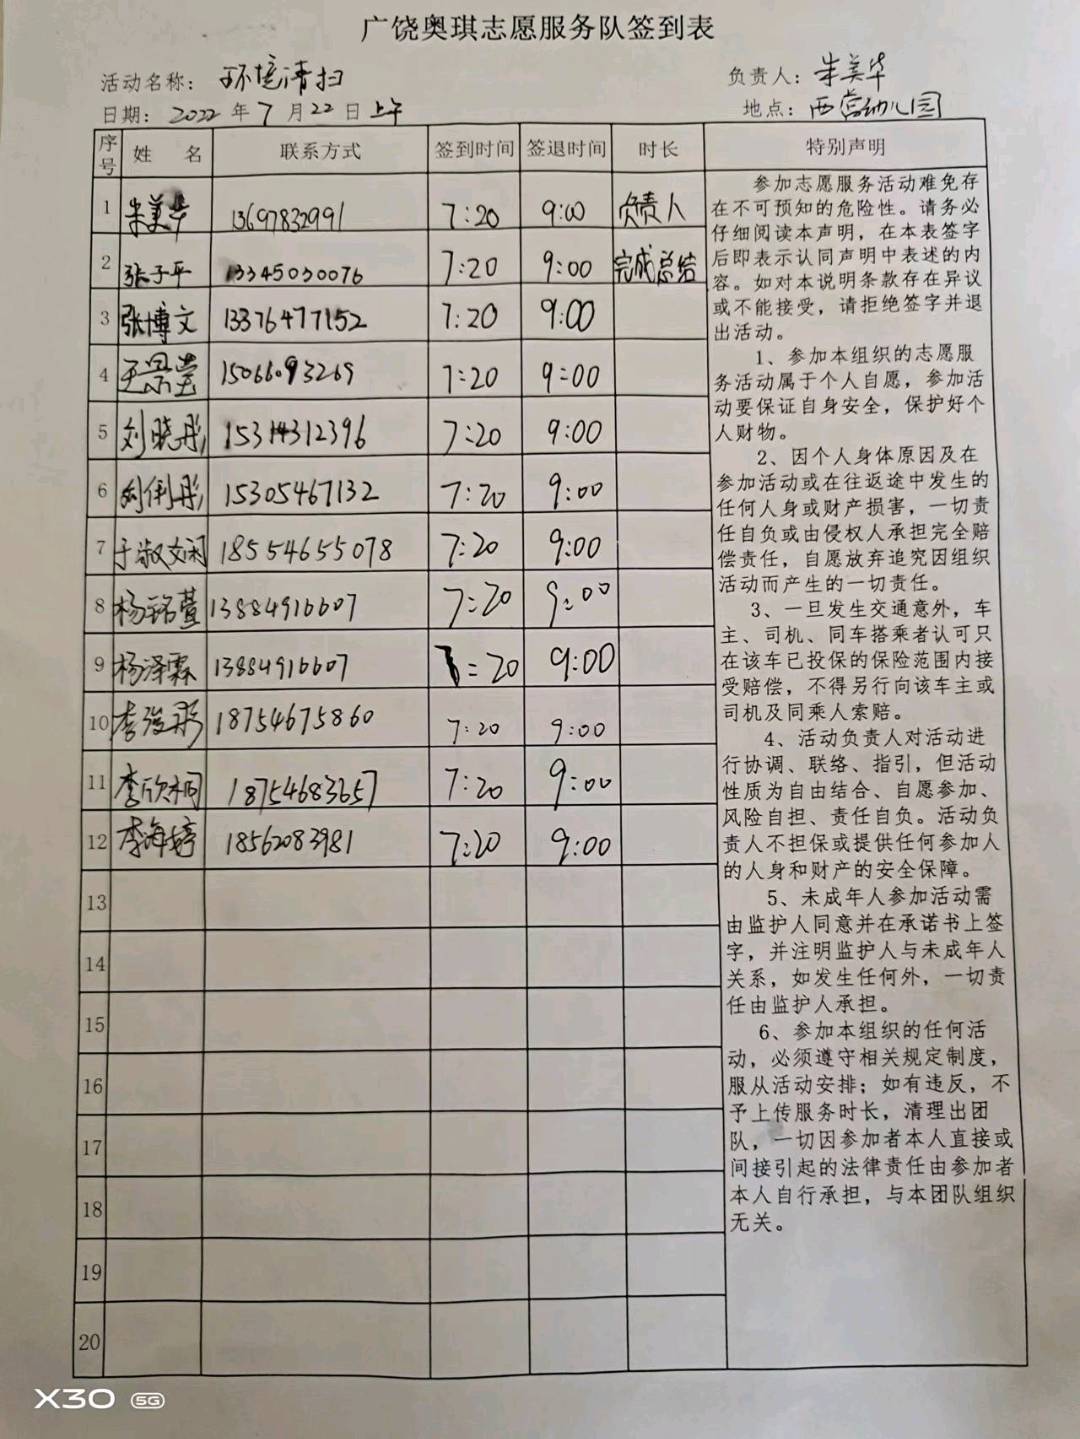 广饶奥琪志愿服务队签到表
活动名称：环境清扫 负责人：朱美华
日期：2022年7月22日上午 地点：西营幼儿园
序号 姓 名 联系方式 签到时间 签退时间 时长 特别声明
1 朱美华 13697832991 7:20 9:00 负责人
2 张子平 13345030076 7:20 9:00 完成总结
3 张博文 13376477152 7:20 9:00
4 王景莹 15066093269 7:20 9:00
5 刘晓彤 15314312396 7:20 9:00
6 刘俐彤 15305467132 7:20 9:00
7 于淑文闲 18554655078 7:20 9:00
8 杨铭萱 13884916607 7:20 9:00
9 杨泽霖 13884916607 7:20 9:00
10 李俊彤 18754675860 7:20 9:00
11 李欣桐 18754683657 7:20 9:00
12 李海婷 18562083981 7:20 9:00
13
14
15
16
17
18
19
20
参加志愿服务活动难免存
在不可预知的危险性。请务必
仔细阅读本声明，在本表签字
后即表示认同声明中表述的内
容。如对本说明条款存在异议
或不能接受，请拒绝签字并退
出活动。
1、参加本组织的志愿服
务活动属于个人自愿，参加活
动要保证自身安全，保护好个
人财物。
2、因个人身体原因及在
参加活动或在往返途中发生的
任何人身或财产损害，一切责
任自负或由侵权人承担完全赔
偿责任，自愿放弃追究因组织
活动而产生的一切责任。
3、一旦发生交通意外，车
主、司机、同车搭乘者认可只
在该车已投保的保险范围内接
受赔偿，不得另行向该车主或
司机及同乘人索赔。
4、活动负责人对活动进
行协调、联络、指引，但活动
性质为自由结合、自愿参加、
风险自担、责任自负。活动负
责人不担保或提供任何参加人
的人身和财产的安全保障。
5、未成年人参加活动需
由监护人同意并在承诺书上签
字，并注明监护人与未成年人
关系，如发生任何外，一切责
任由监护人承担。
6、参加本组织的任何活
动，必须遵守相关规定制度，
服从活动安排；如有违反，不
予上传服务时长，清理出团
队，一切因参加者本人直接或
间接引起的法律责任由参加者
本人自行承担，与本团队组织
无关。
X30 5G